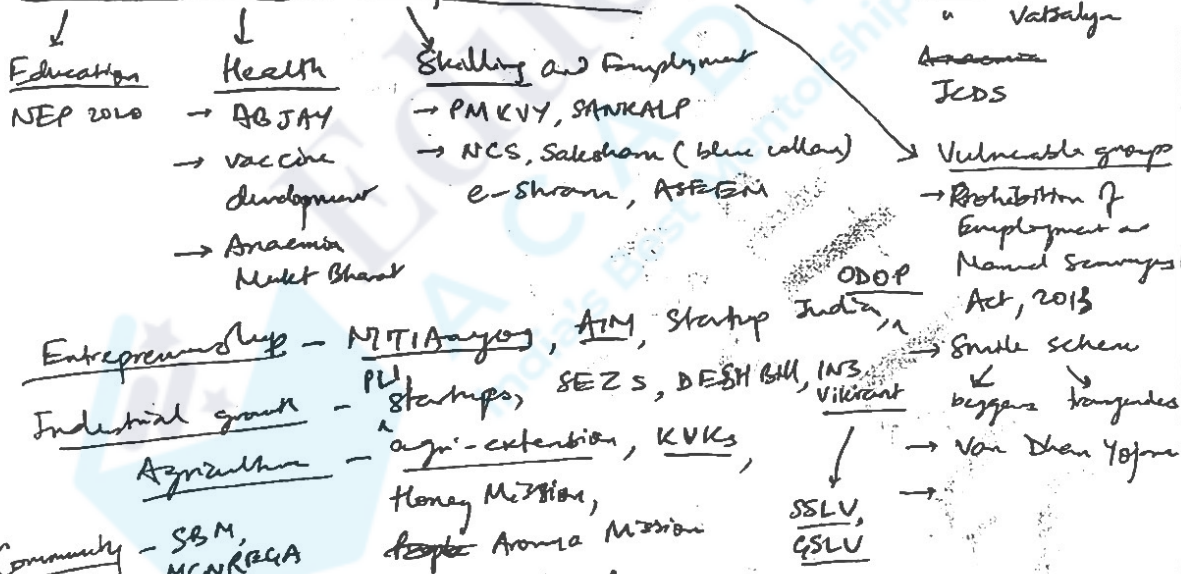 " Vatsalya
Education
NEP 2020
Health
→ ABJAY
→ vaccine
development
→ Anaemia
Mukt Bharat
Skilling and Employment
→ PMKVY, SANKALP
→ NCS, Saksham (blue collar)
e-Shram, ASEEM
Anaemia
ICDS
Vulnerable groups
→ Prohibition of
Employment as
Manual Scavengers
Act, 2013
→ Smile scheme
beggars transgenders
→ Van Dhan Yojna
→
Entrepreneurship - NITI Aayog, AIM, Startup India, ODOP
Industrial growth - PLI, Startups, SEZs, DESH Bill, INS Vikrant
SSLV,
GSLV
Agriculture - agri-extension, KVKs,
Honey Mission,
Aroma Mission
Community - SBM,
MGNREGA
India's Best Mentorship